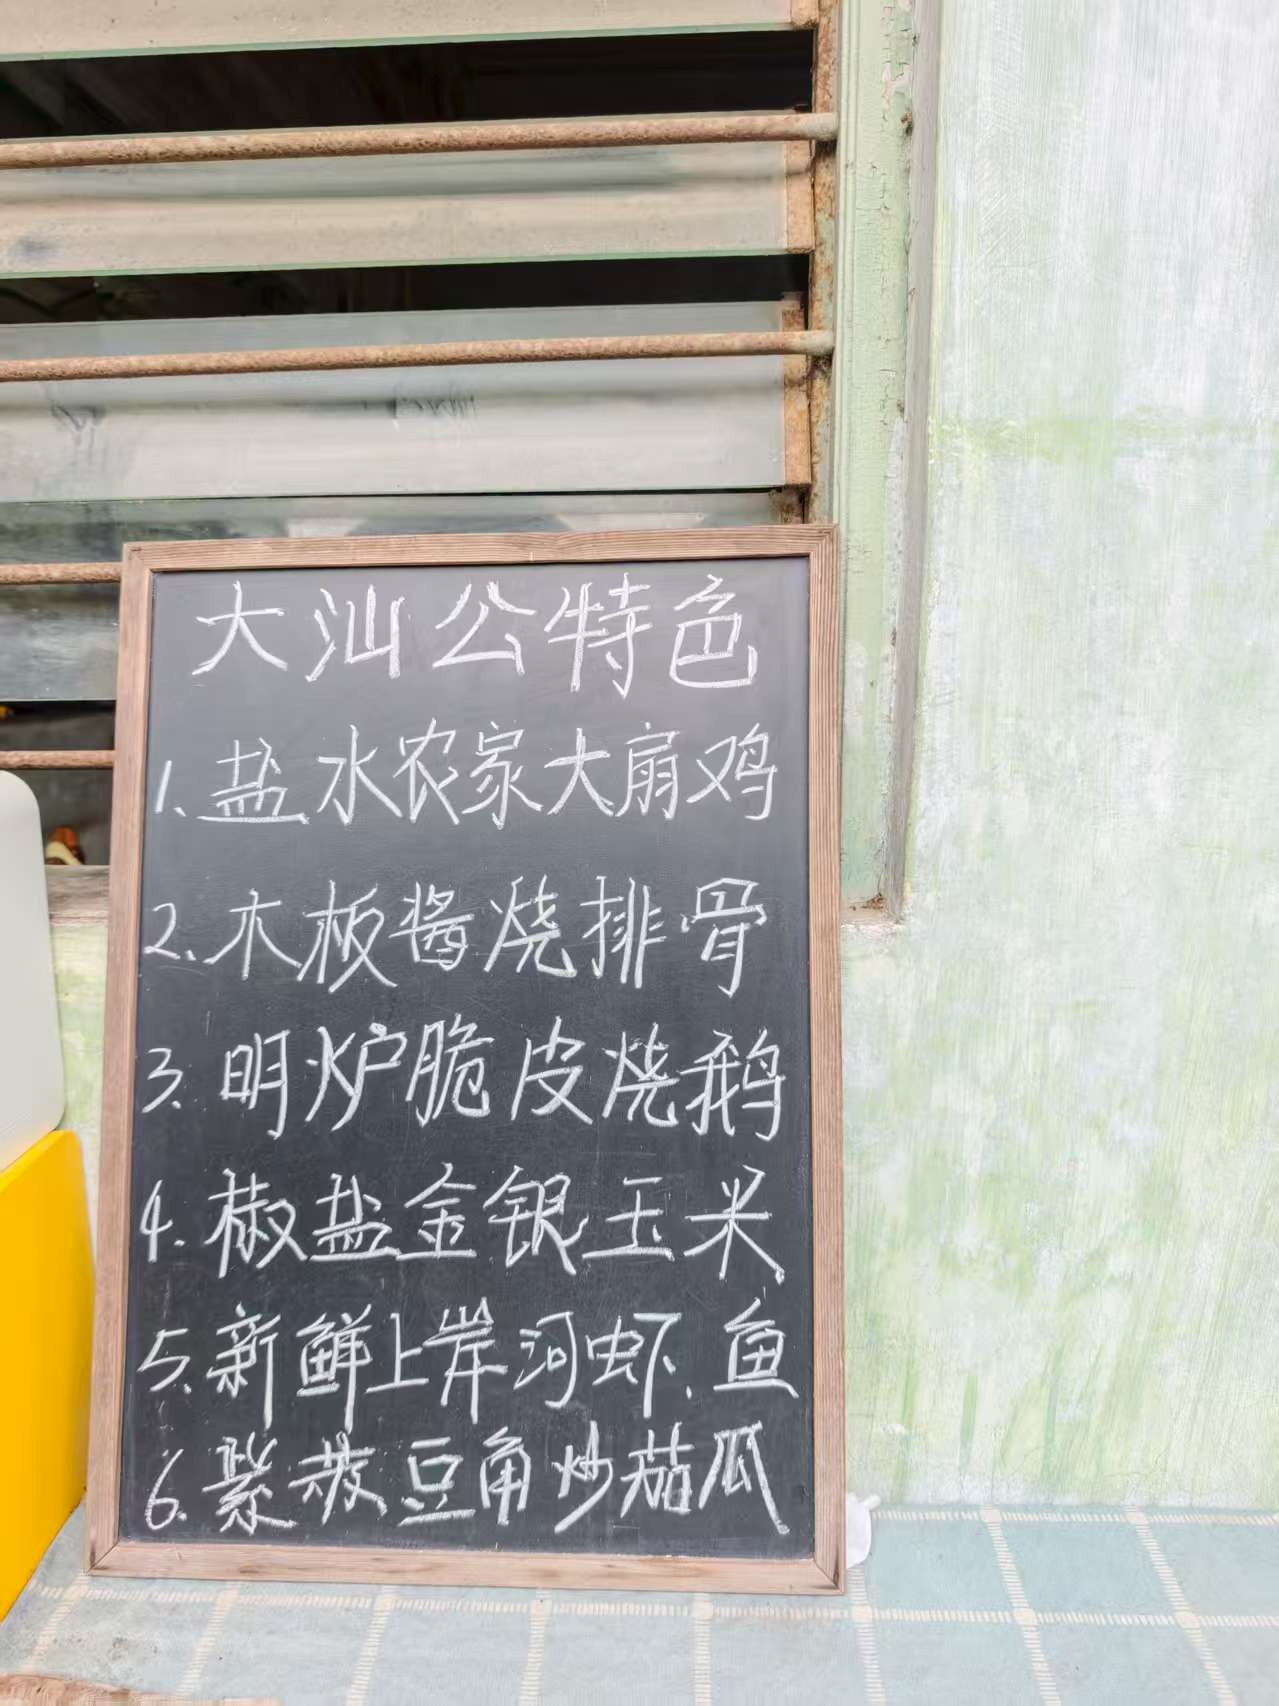 大汕公特色
1、盐水农家大扇鸡
2、木板酱烧排骨
3、明炉脆皮烧鹅
4、椒盐金银玉米
5、新鲜上岸河虾、鱼
6、紫菽豆角炒茄瓜